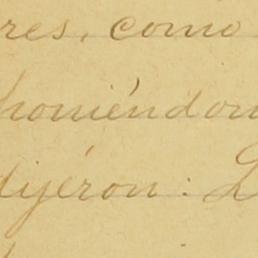 res, como
poniéndom
dijéron: L